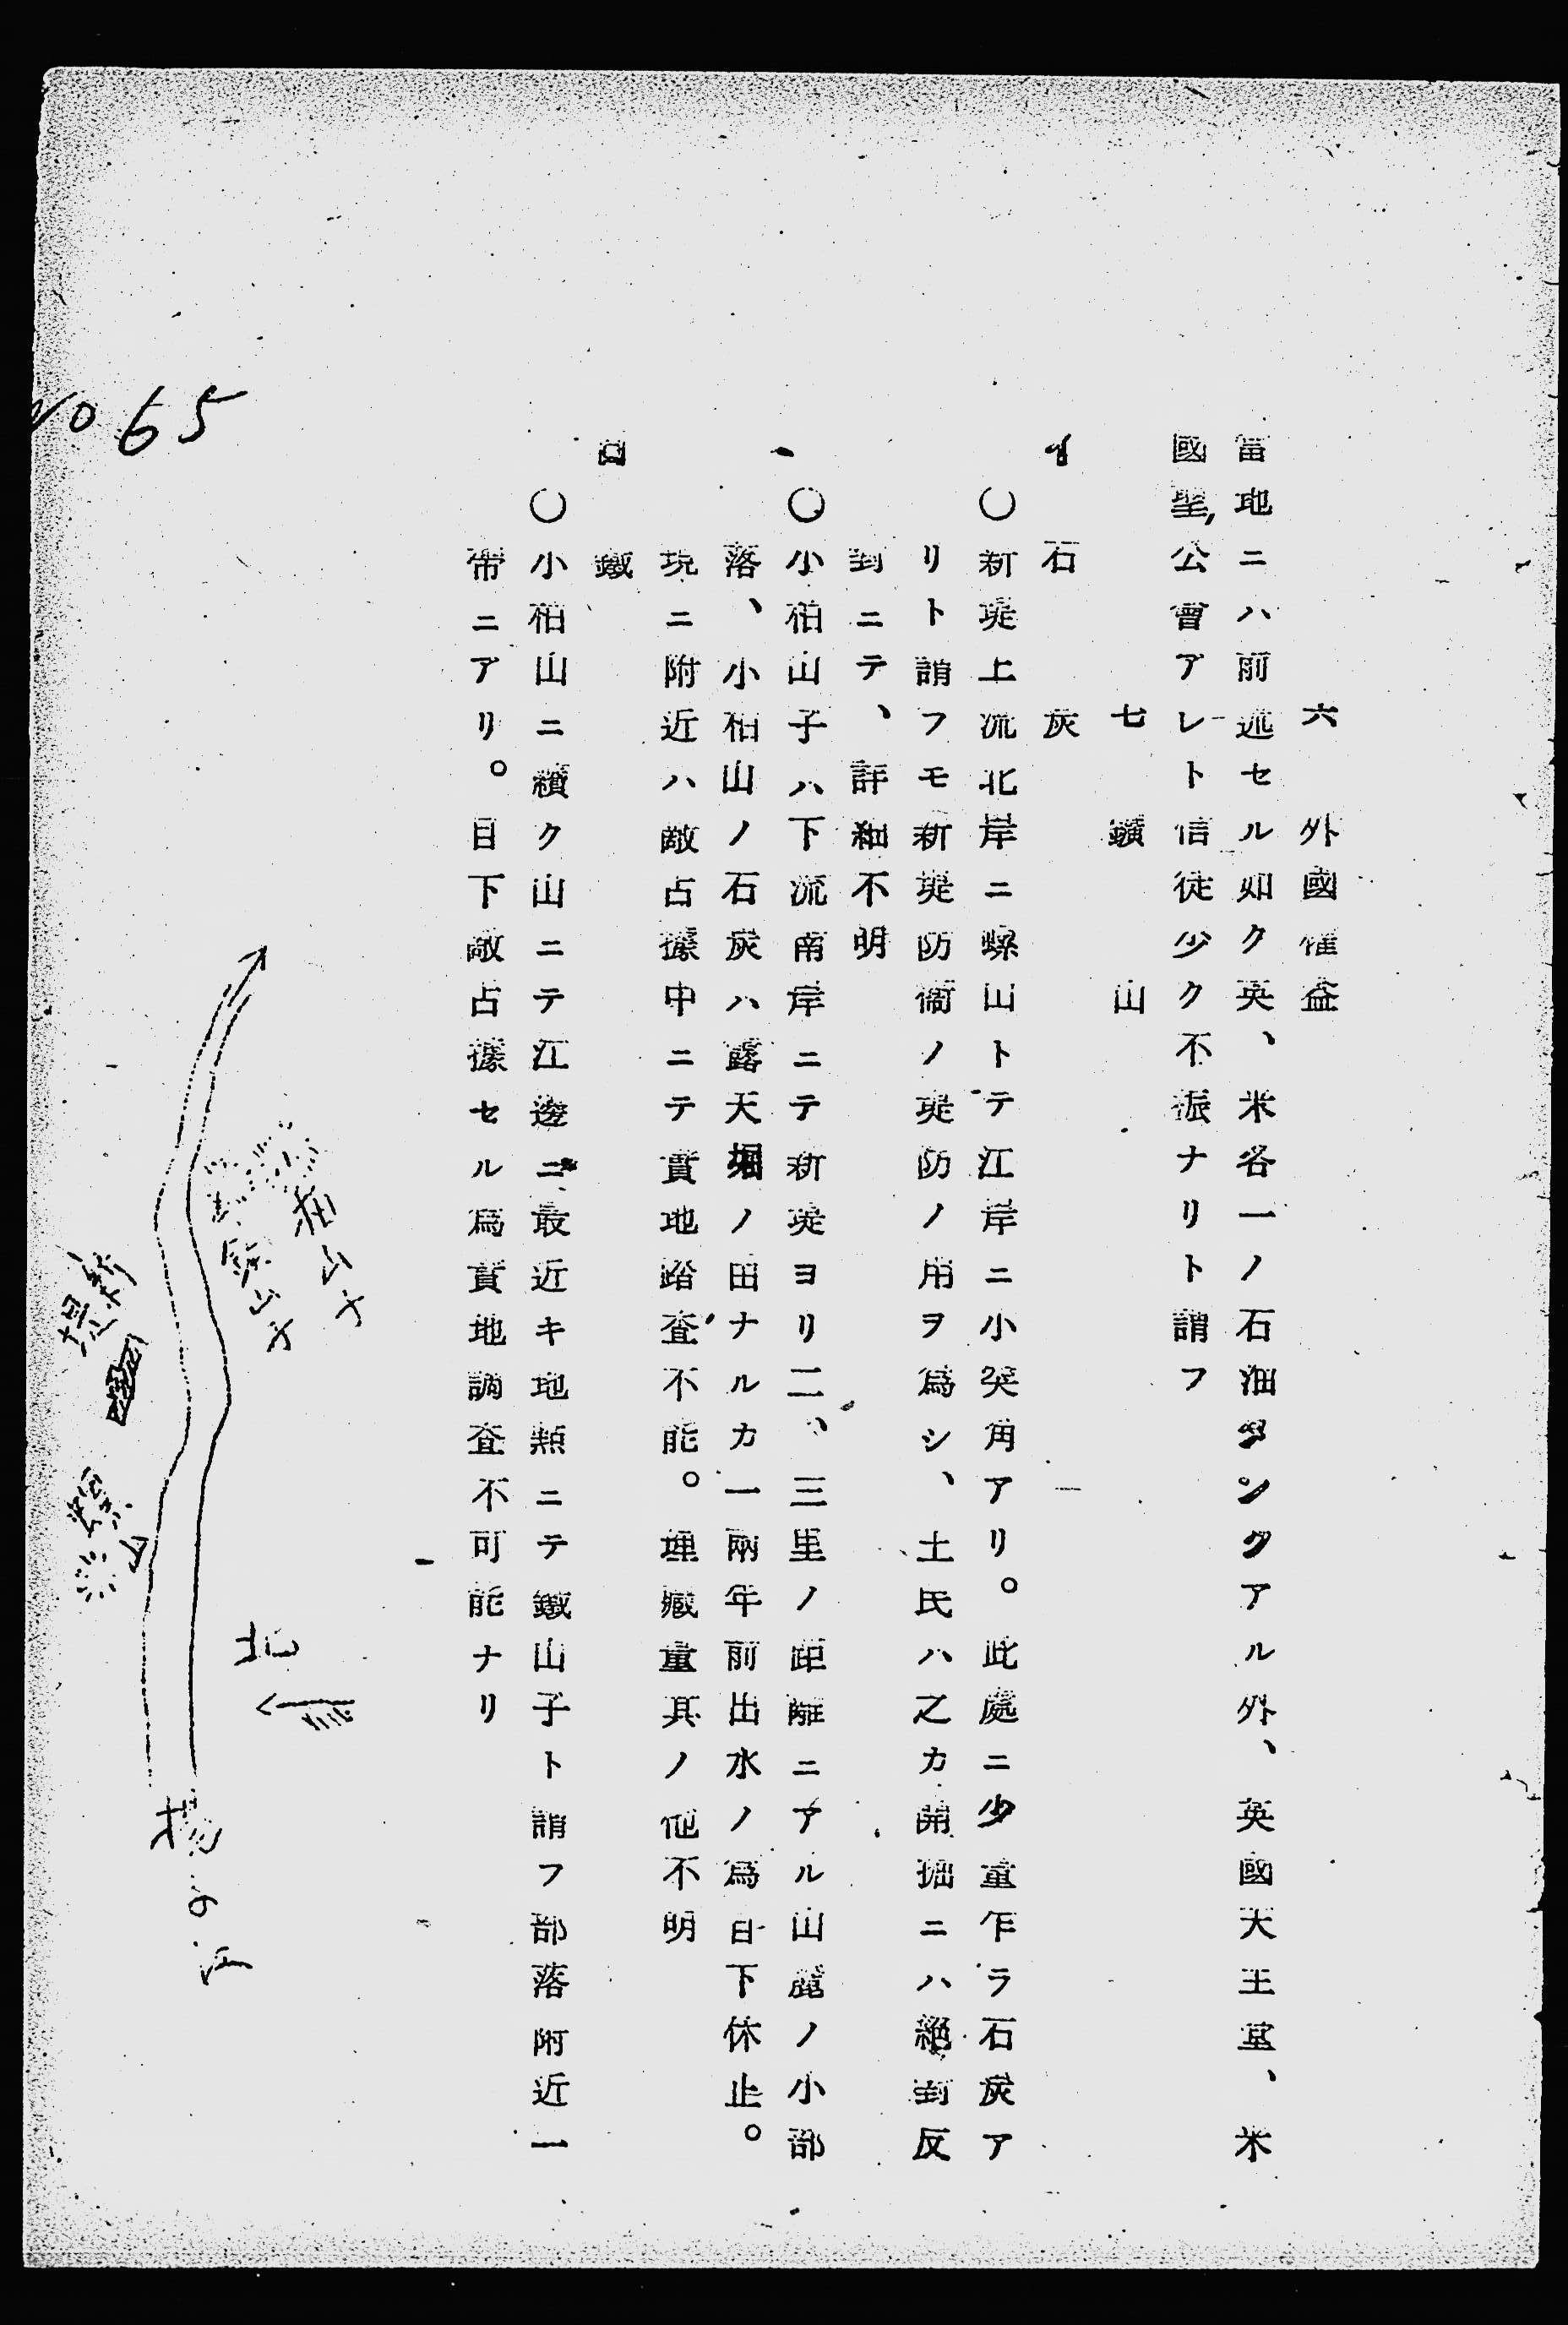 六　外國權益
當地ニハ前述セル如ク英、米各一ノ石油タンクアル外、英國天主堂、米
國聖公會アレト信徒少ク不振ナリト謂フ
七　鑛山
イ　石炭
〇新堤上流北岸ニ螺山トテ江岸ニ小突角アリ。此處ニ少量乍ラ石炭ア
リト謂フモ新堤防衞ノ堤防ノ用ヲ爲シ、土民ハ之カ開掘ニハ絕對反
對ニテ、詳細不明
〇小柏山子ハ下流南岸ニテ新堤ヨリ二、三里ノ距離ニアル山麓ノ小部
落、小柏山ノ石炭ハ露天堀ノ由ナルカ一兩年前出水ノ爲目下休止。
現ニ附近ハ敵占據中ニテ實地踏査不能。埋藏量其ノ他不明
ロ　鐵
〇小柏山ニ續ク山ニテ江邊ニ最近キ地點ニテ鐵山子ト謂フ部落附近一
帶ニアリ。目下敵占據セル爲實地調査不可能ナリ
柏山子
鉄山子
新堤
螺山
北
揚
No 65